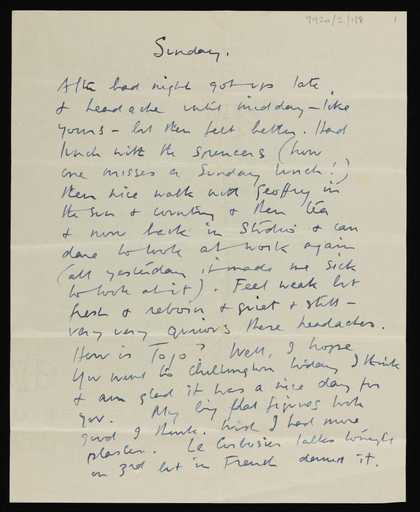 7920/2/118 1
Sunday.
After bad night got up late,
& headache until midday – like
yours – but then felt better. Had
lunch with the Spencers (how
one misses a Sunday lunch!)
then nice walk with Geoffrey in
the sun & country & then tea
& now back in Studio & can
dare to look at work again
(all yesterday it made me sick
to look at it). Feel weak but
fresh & reborn & quiet & still –
very very curious these headaches.
How is Tojo? Well, I hope
You went to today I think
& am glad it was a nice day for
you. My big flat figures look
good I think. Wish I had more
plaster. Le Corbusier talks tonight
on 3rd but in French damn it.